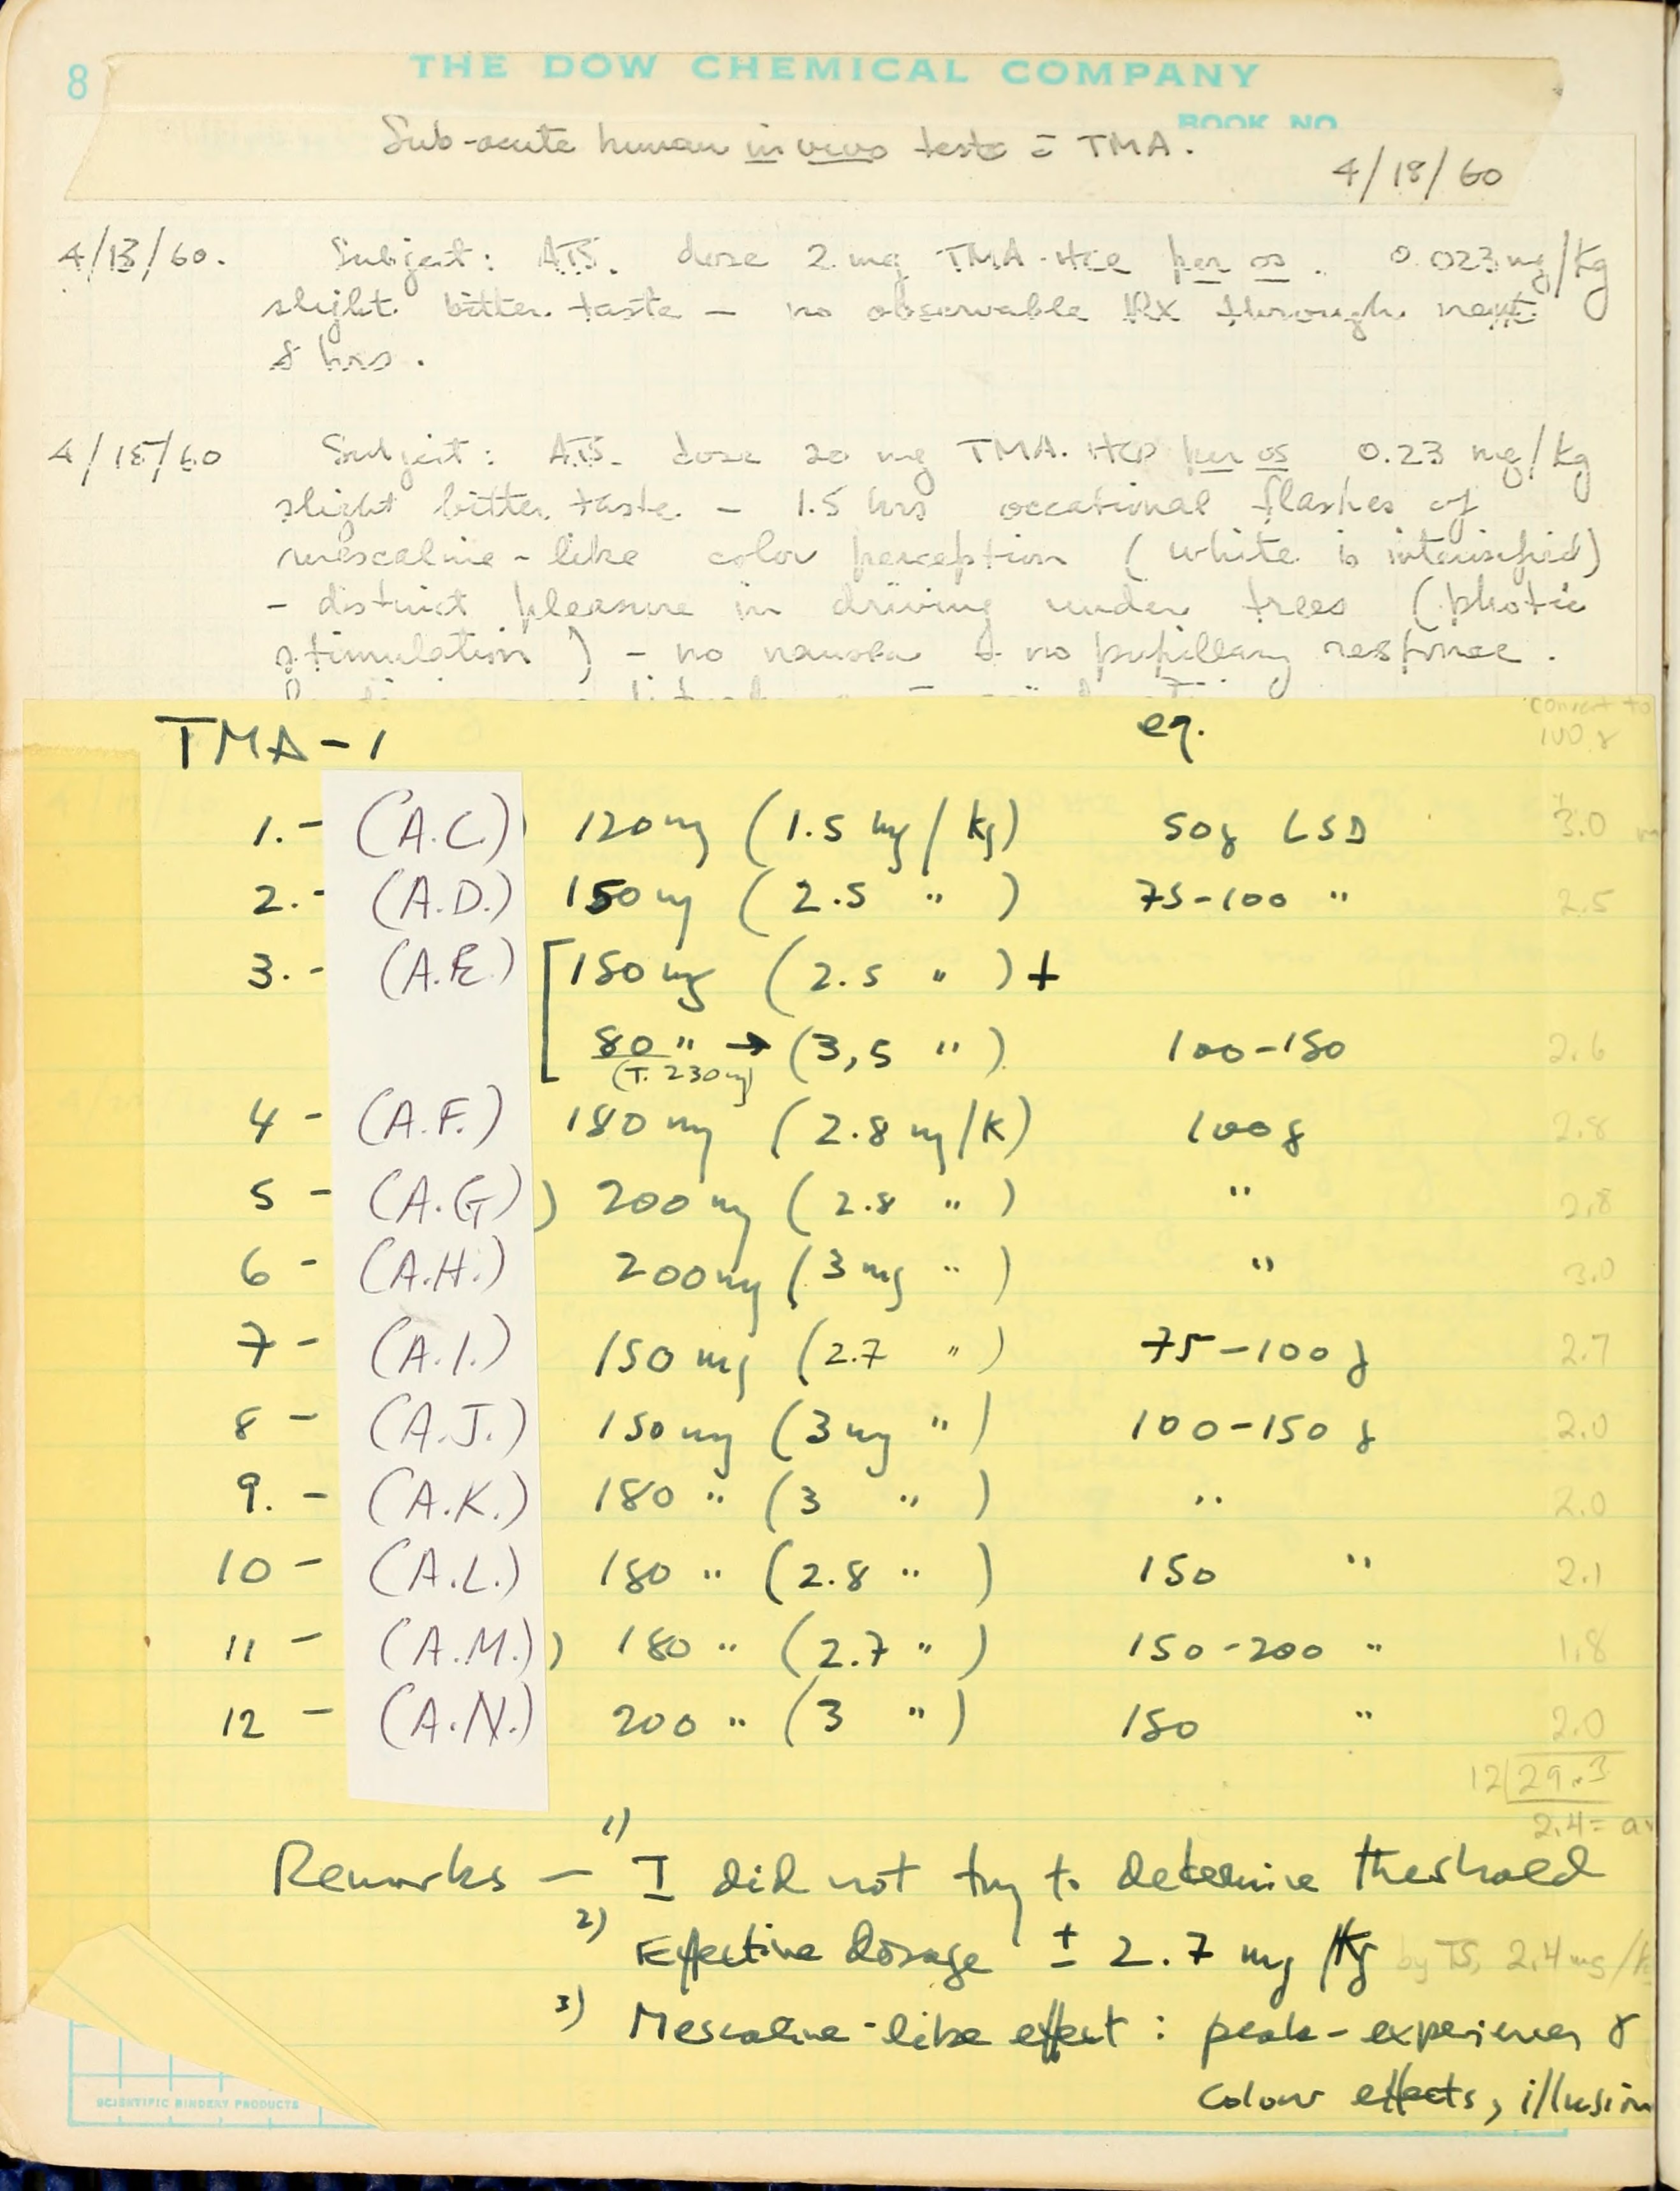 8
THE DOW CHEMICAL COMPANY
BOOK NO
Sub-acute human in vivo tests c̄ TMA.
4/18/60
4/13/60. Subject: ATS. dose 2 mg TMA·HCl per os. 0.023 mg/kg
slight bitter taste - no observable Rx through next
8 hrs.
4/15/60 Subject: ATS. dose 20 mg TMA·HCl per os 0.23 mg/kg
slight bitter taste - 1.5 hrs occational flashes of
mescaline-like color perception (white is intensified)
- distinct pleasure in driving under trees (photic
stimulation) - no nausea & no pupillary response.
TMA-1 eq. convert to
100 γ
1.- (A.C.) 120 mg (1.5 mg/kg) 50γ LSD 3.0
2.- (A.D.) 150 mg (2.5 " ) 75-100 " 2.5
3.- (A.E.) [150 mg (2.5 " ) +
80 " → (3,5 " ) 100-150 2.6
(T. 230 mg)
4 - (A.F.) 180 mg (2.8 mg/K) 100γ 2.8
5 - (A.G)) 200 mg (2.8 " ) " 2.8
6 - (A.H.) 200 mg (3 mg " ) " 3.0
7 - (A.I.) 150 mg (2.7 " ) 75-100 γ 2.7
8 - (A.J.) 150 mg (3 mg " ) 100-150 γ 2.0
9. - (A.K.) 180 " (3 " ) " 2.0
10 - (A.L.) 180 " (2.8 " ) 150 " 2.1
11 - (A.M.)) 180 " (2.7 " ) 150-200 " 1.8
12 - (A.N.) 200 " (3 " ) 150 " 2.0
12/29.3
2.4 = av
Remarks - 1) I did not try to determine theshold
2) Effective dosage ± 2.7 mg/Kg by TS, 2.4 mg/k
3) Mescaline-like effect: peak-experiences &
colour effects, illusion
SCIENTIFIC BINDERY PRODUCTS